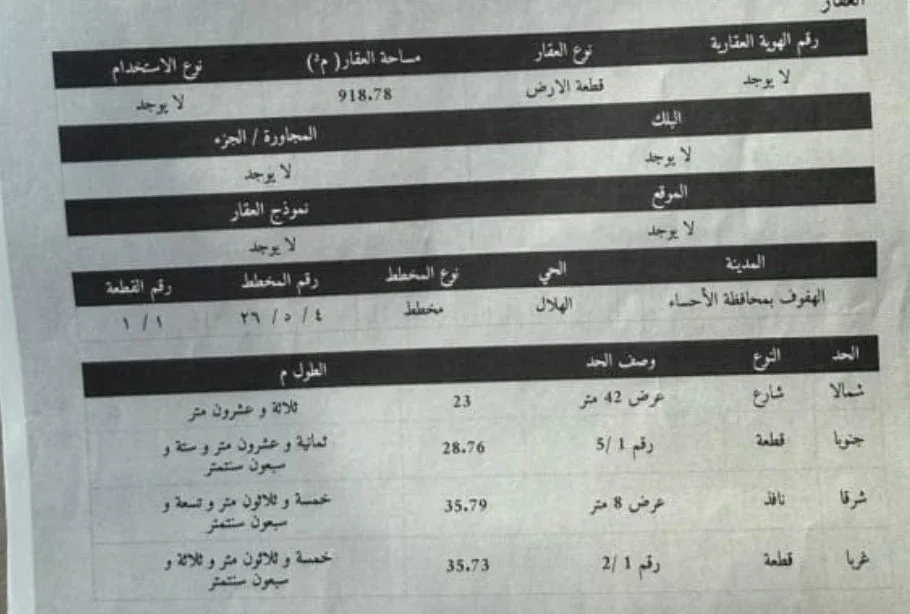 العقار
رقم الهوية العقارية نوع العقار مساحة العقار( م٥) نوع الاستخدام
لا يوجد قطعة الارض 918.78 لا يوجد
البلك المجاورة / الجزء
لا يوجد لا يوجد
الموقع نموذج العقار
لا يوجد لا يوجد
المدينة الحي نوع المخطط رقم المخطط رقم القطعة
الهفوف بمحافظة الأحساء الهلال مخطط ٤ / ٥ / ٢٦ ١ / ١
الحد النوع وصف الحد الطول م
شمالا شارع عرض 42 متر 23 ثلاثة و عشرون متر
جنوبا قطعة رقم 1 /5 28.76 ثمانية و عشرون متر و ستة و
سبعون سنتمتر
شرقا نافذ عرض 8 متر 35.79 خمسة و ثلاثون متر و تسعة و
سبعون سنتمتر
غربا قطعة رقم 1 /2 35.73 خمسة و ثلاثون متر و ثلاثة و
سبعون سنتمتر